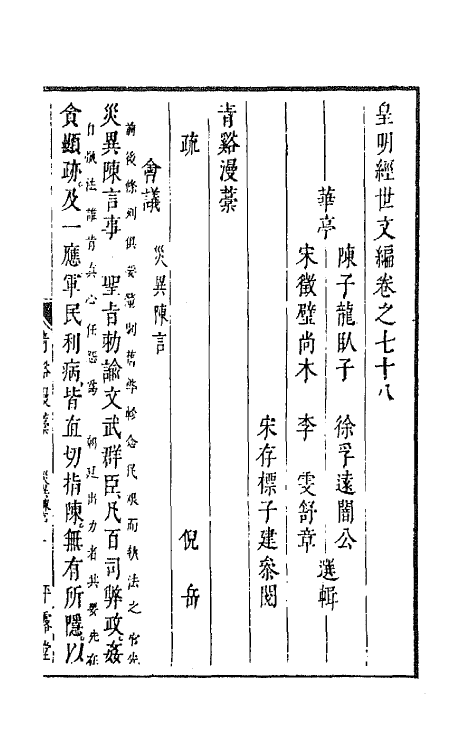 皇明經世文編卷之七十八
華亭
陳子龍臥子 徐孚遠闇公
宋徵璧尚木 李 雯舒章
選輯
宋存標子建參閱
青谿漫藁
疏 倪岳
會議 災異陳言
前後條列俱妥
民艱而執法之
災異陳言事 聖旨勅諭文武群臣凡百司弊政姦
自
心任怨為 朝廷出力者其要先在
貪顯跡及一應軍民利病皆直切指陳無有所隱以
青谿漫藁
平露堂